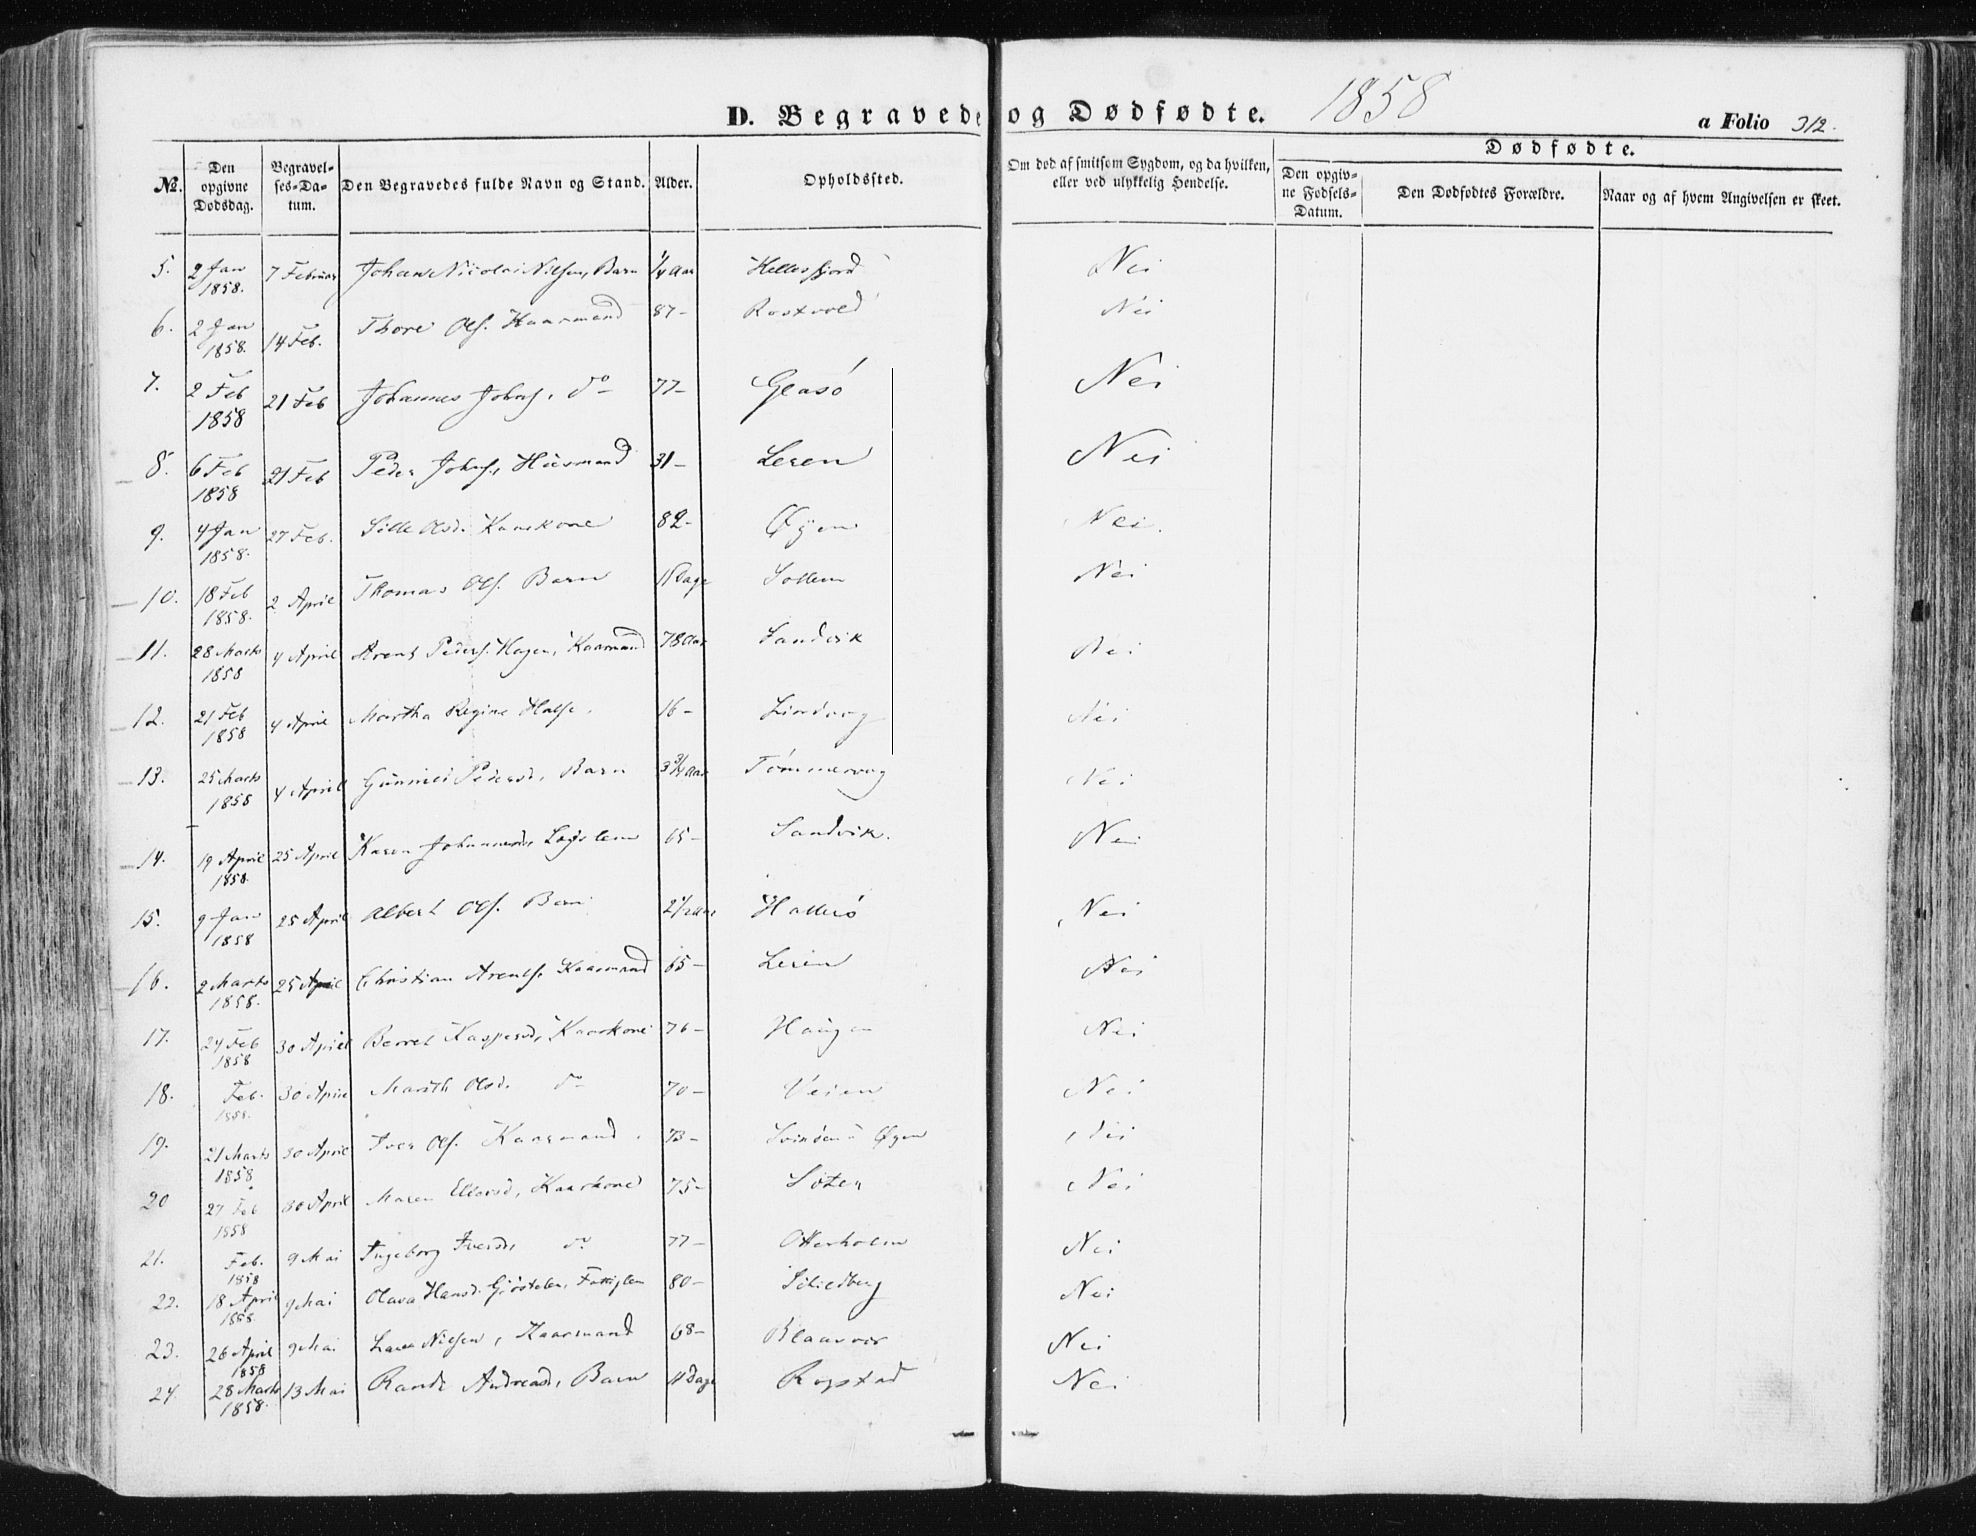 D. Begravede og Dødfødte. 1858
a Folio 312.
Dødfødte.
№. Den opgivne Dødsdag. Begravelses-Datum. Den Begravedes fulde Navn og Stand. Alder. Opholdssted. Om død af smitsom Sygdom, og da hvilken, eller ved ulykkelig Hendelse. Den opgivne Fødsels-Datum. Den Dødfødtes Forældre. Naar og af hvem Angivelsen er skeet.
5. 2 Jan 1858. 7 Februar Johan Nicolai Nilsen, Barn 1/4 Aar Hellesfjord Nei
6. 2 Jan 1858. 14 Feb. Thore Ols. Kaarmand 87- Rostvold Nei
7. 2 Feb 1858 21 Feb Johannes Johns. do 77- Glasø Nei
8. 6 Feb 1858 21 Feb Peder Johns, Huusmand 31- Leren Nei
9. 4 Jan 1858. 27 Feb. Sille Olsd. Kaarkone 82- Øyen Nei.
10. 18 Feb 1858. 2 April Thomas Ols. Barn Dage Sollem Nei
11. 28 Marts 1858 4 April Arent Peders. Hagen, Kaarmand 78 Aar Sandvik Nei
12. 21 Feb 1858 4 April Martha Regine Halse. 16- Lindvog Nei
13. 25 Marts 1858 4 April Gunnild Pedersd, Barn 3 3/4 Aar Tømmervog Nei
14. 19 April 1858. 25 April Karen Johannesd, Lægslem 65- Sandvik. Nei
15. 9 Jan 1858 25 April Albert Ols. Barn 2 1/2 Aar Hallesø Nei
16. 2 Marts 1858. 25 April Christian Arents. Kaarmand 65- Leren Nei
17. 24 Feb 1858 30 April Berret Kaspersd, Kaarkone 76- Haugen Nei
18. Feb. 1858. 30 April Marith Olsd. do 70- Veien Nei
19. 21 Marts 1858 30 April Iver Ols. Kaarmand. 73- Øyen Nei
20 27 Feb 1858 30 April Maren Ellevsd, Kaarkone 75- Sæter Nei
21. Feb. 1858 9 Mai Ingeborg Iversd, do 77- Otterholm Nei
22. 18 April 1858. 9 Mai Olava Hansd. Fattiglem 80- Nei
23. 26 April 1858 9 Mai Lars Nielsen, Kaarmand 68- Blaavær Nei
24. 28 Marts 1858. 13 Mai Randi Andreasd, Barn 11 Dage Rogstad Nei